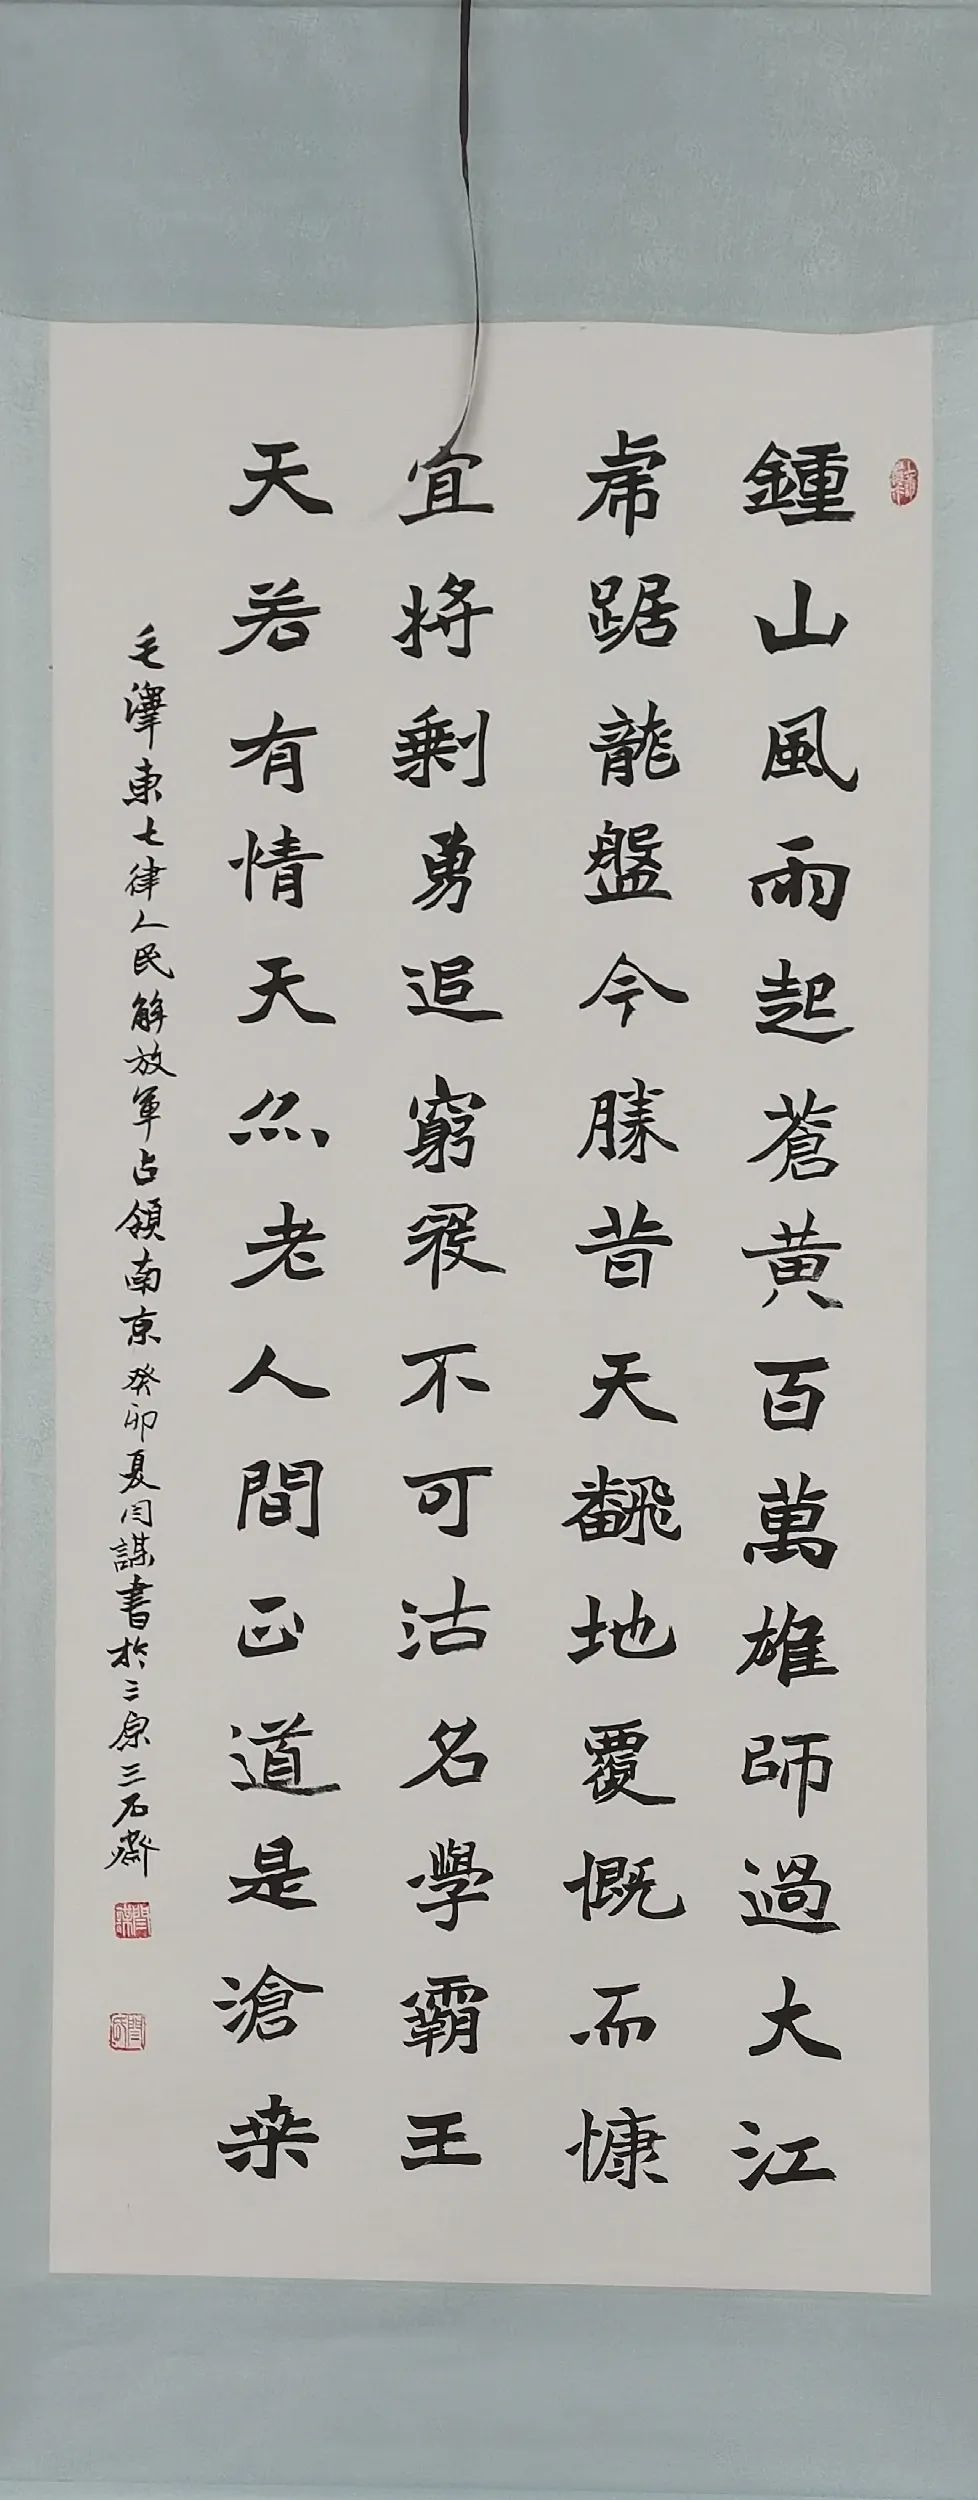 鍾山風雨起蒼黄百萬雄師過大江
虎踞龍盤今勝昔天飜地覆慨而慷
宜將剩勇追窮寇不可沽名學霸王
天若有情天亦老人間正道是滄桑
毛澤東七律人民解放軍占領南京癸卯夏闫謀書於三原三石齋